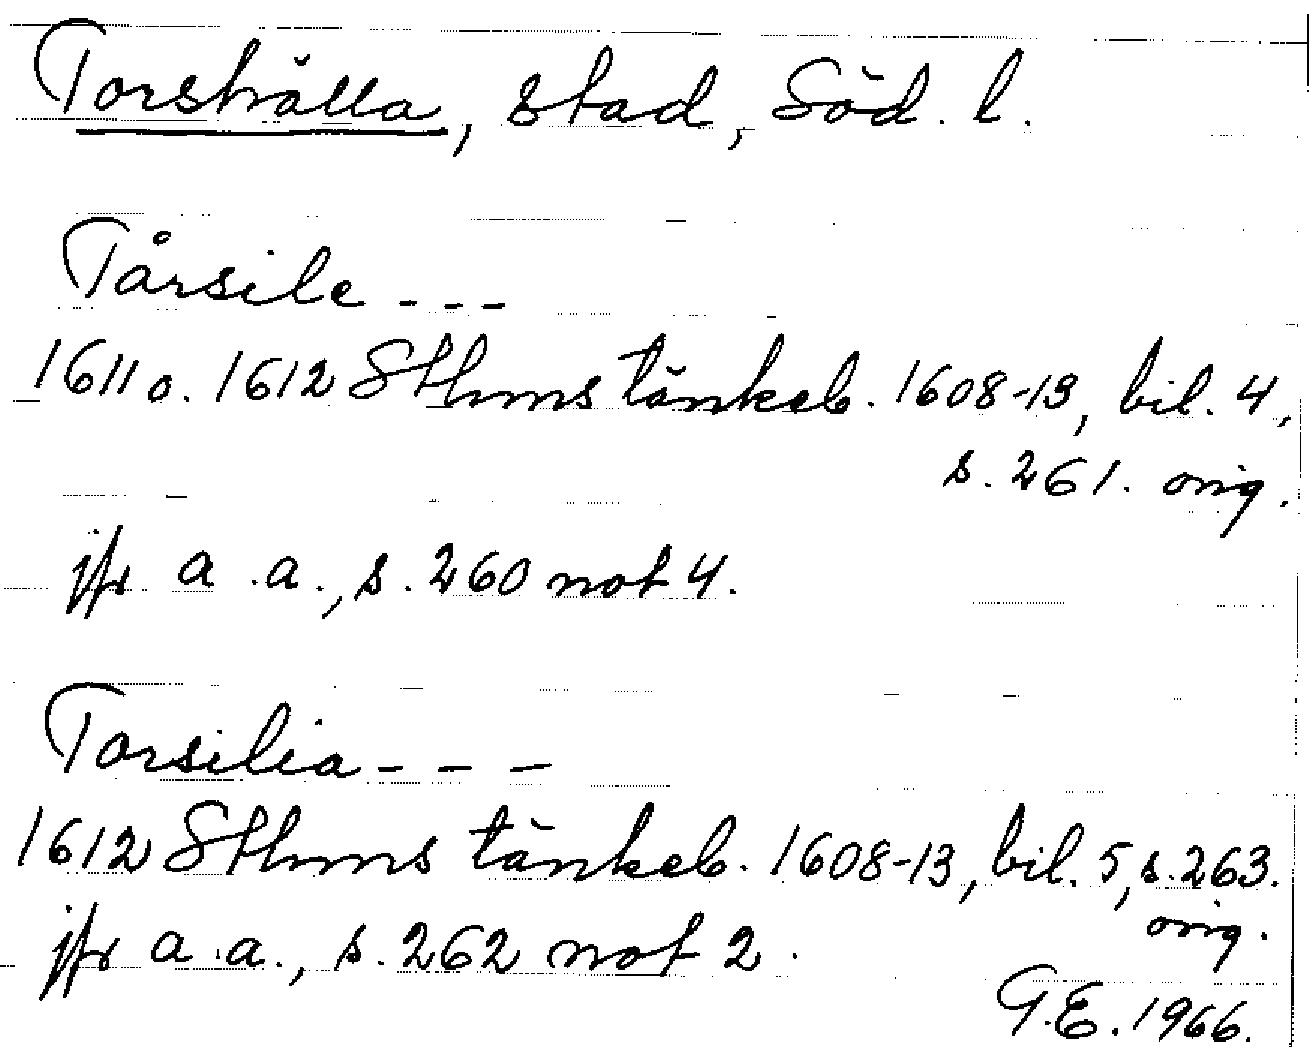 Torshälla, stad, Söd. l.
Tårsile ---
1611 o. 1612 Sthms tänkeb. 1608-13, bil. 4,
s. 261. orig.
jfr a.a., s. 260 not 4.
Torsilia - - -
1612 Sthms tänkeb. 1608-13, bil. 5, s. 263.
orig.
jfr a.a., s. 262 not 2.
G.E. 1966.